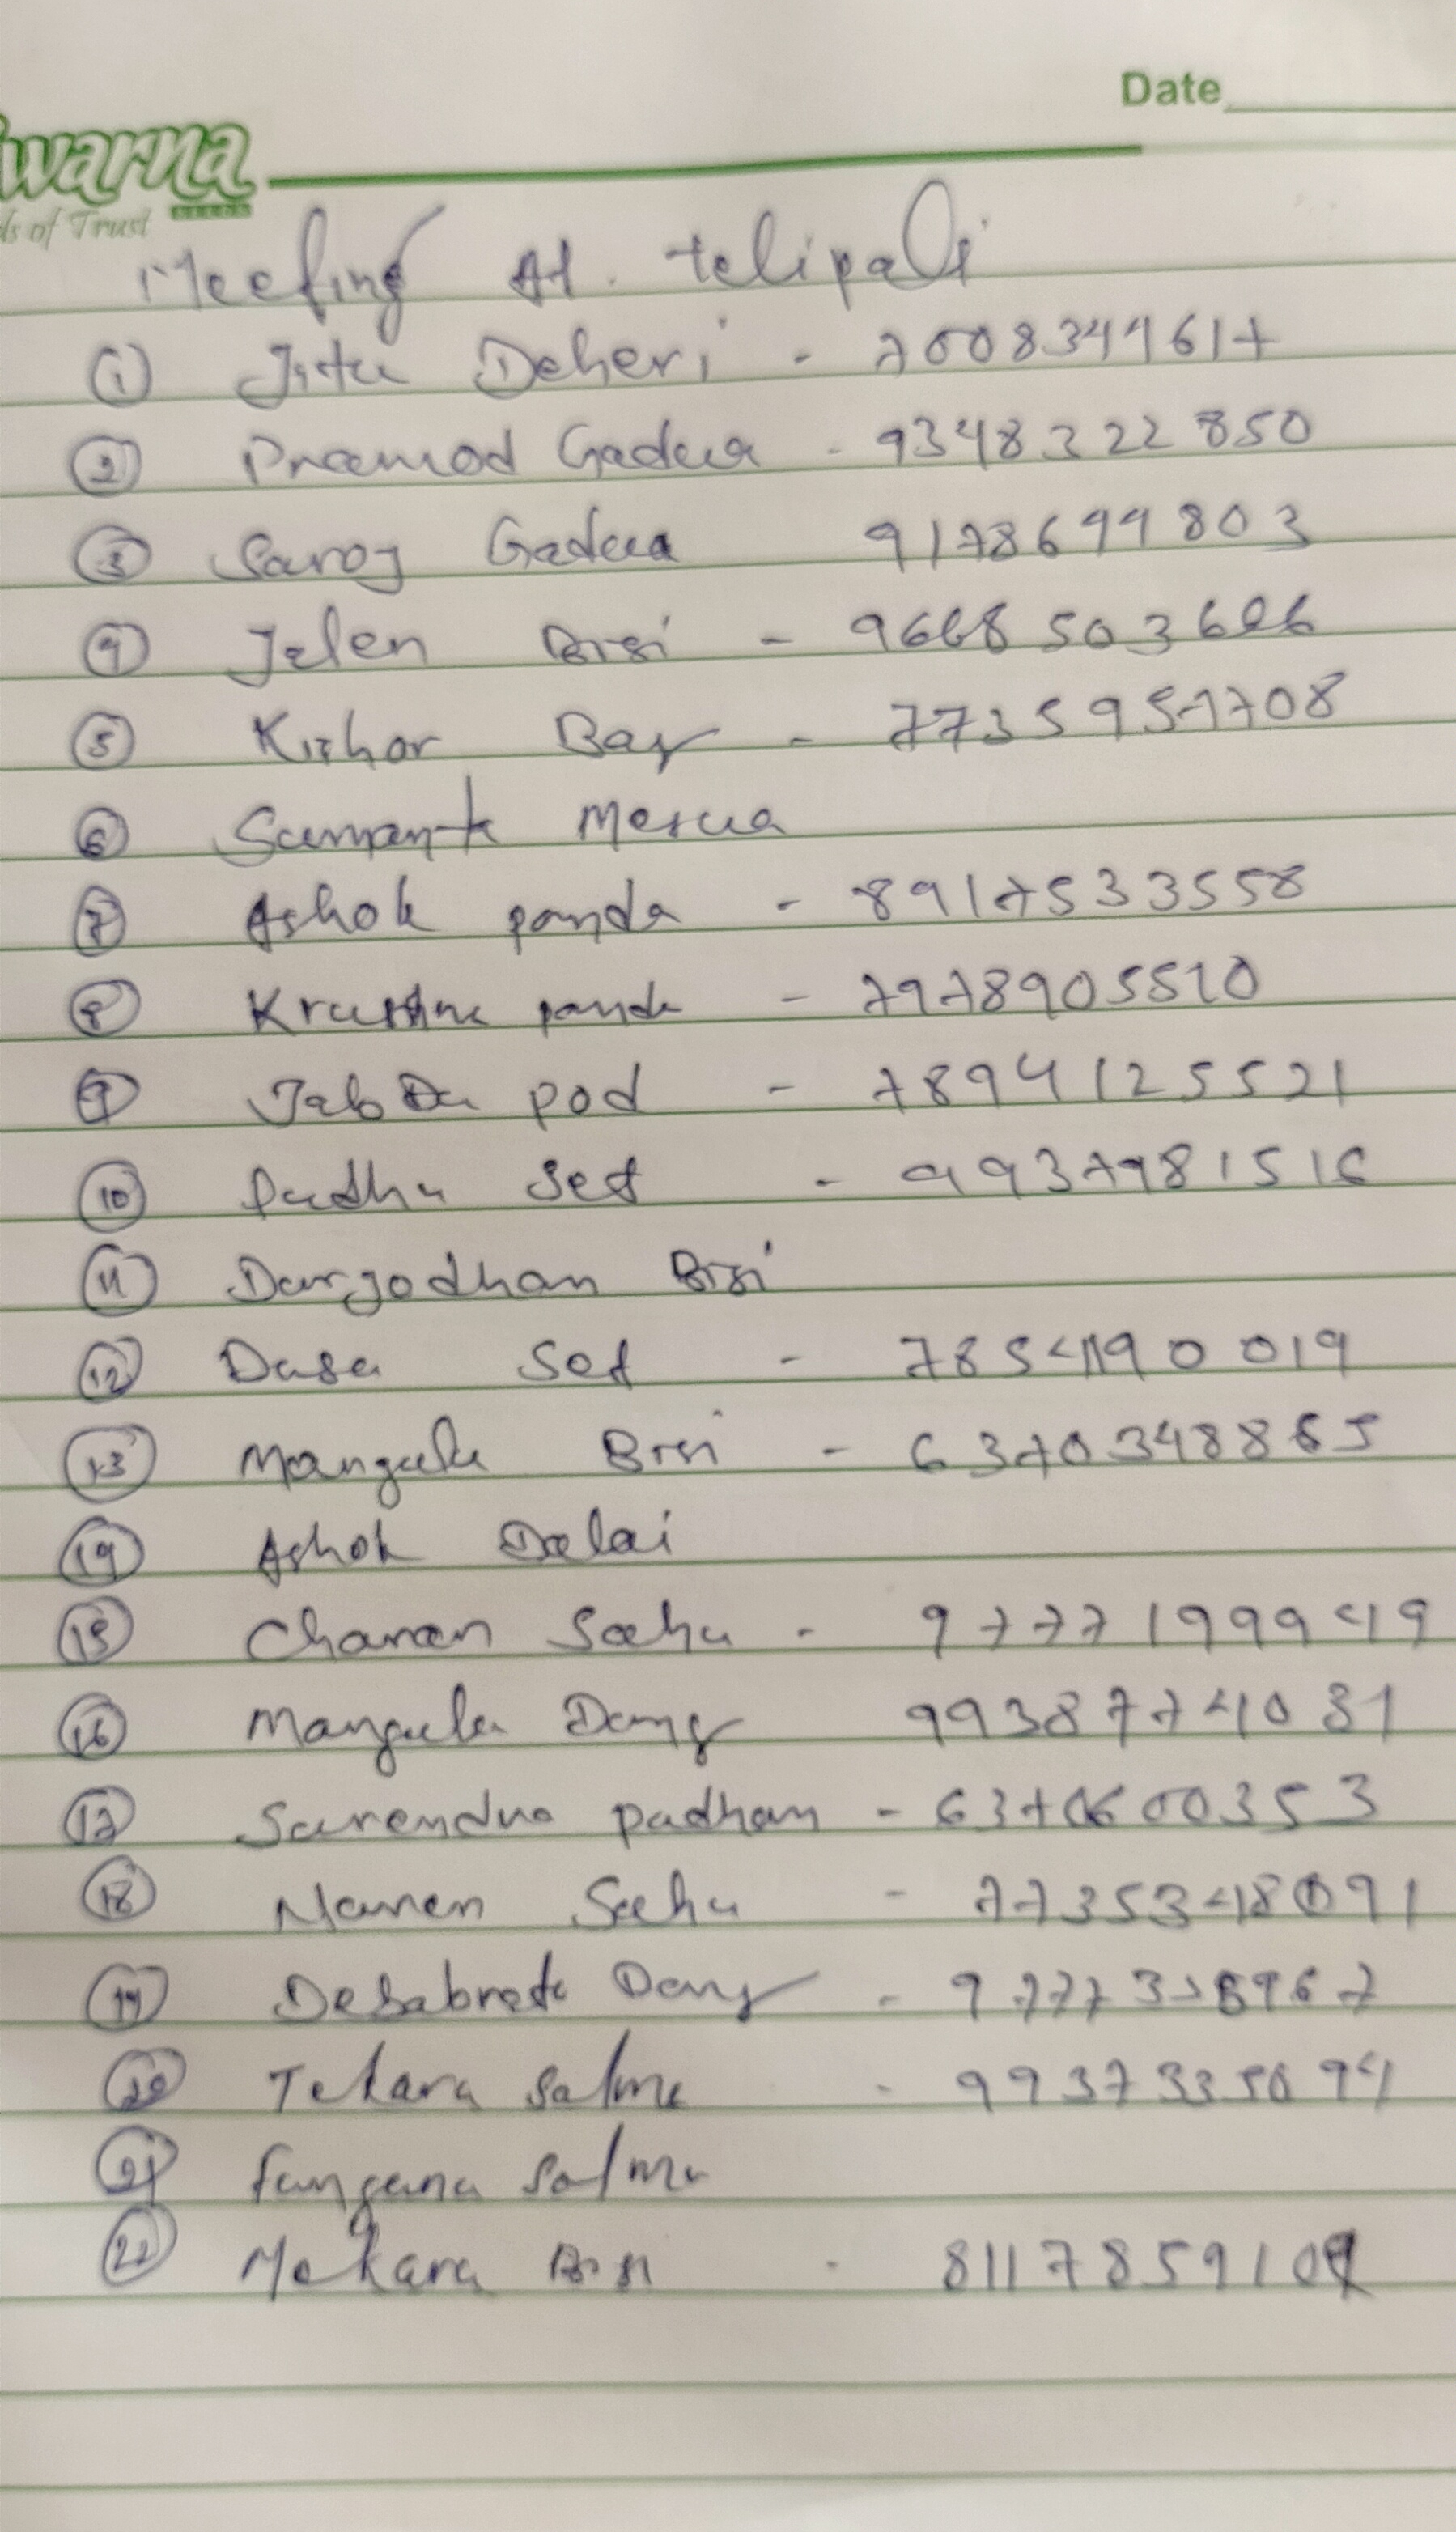 Date
warna
ds of Trust
Meeting At. telipali
1 Jitu Deheri - 7008344617
2 Pramod Gadua - 9348322850
3 Saroj Gadua 9178699803
4 Jalen Bisi - 9668503606
5 Kishor Bag - 7735951708
6 Sumanta Merua
7 Ashok panda - 8917533558
8 Krushna panda - 7978905510
9 pod - 7894125521
10 Padhu Set - 9937981516
11 Durjodhan Bisi
12 Dasa Set - 7854190019
13 Mangulu Bisi - 6370348865
14 Ashok Dalai
15 Charan Sahu - 9777199949
16 Mangulu Dang 9938774081
17 Surendra padhan - 6370600353
18 Naren Sahu - 7735348091
19 Debabrata Dang -
20 Tekara Salma - 9937335094
21 Salma
22 Mekara Bisi - 811785910